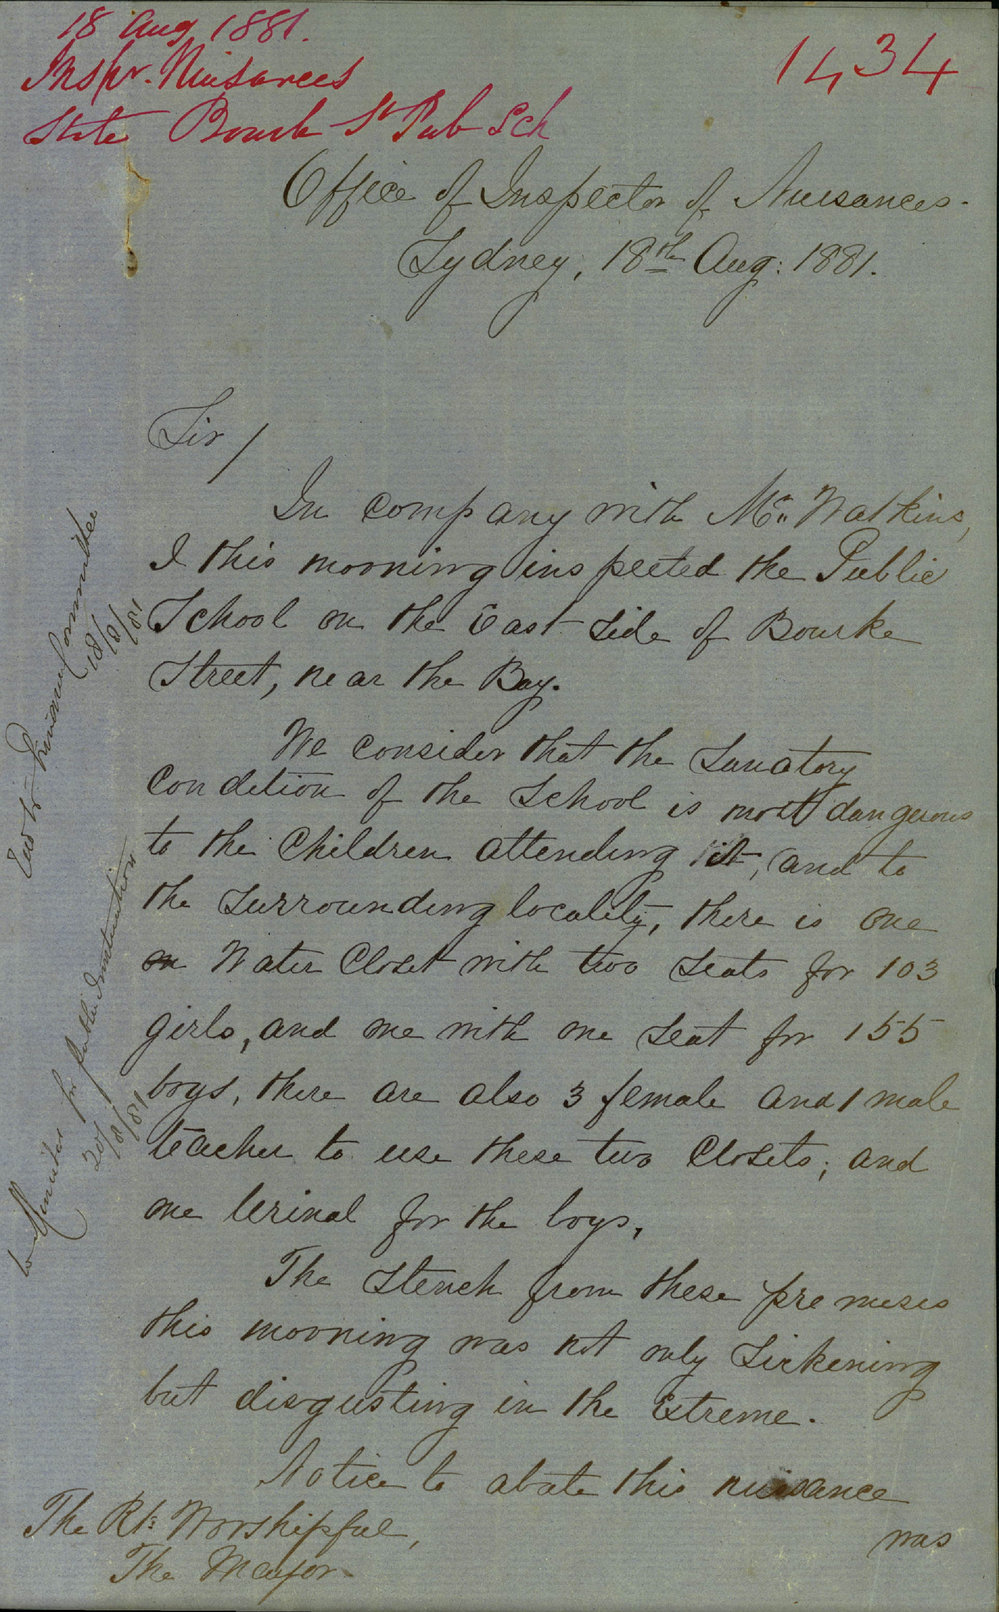 18 Aug 1881.
Inspr. Nuisances
State Bourk St Pub Sch
1434
Office of Inspector of Nuisances.
Sydney, 18th Aug: 1881.
Sir /
In company with Mr. Watkins,
I this morning inspected the Public
School on the East Side of Bourke
Street, near the Bay.
We consider that the Sanatory
Condition of the School is most dangerous
to the Children attending it, and to
the surrounding locality, there is one
Water Closet with two Seats for 103
girls, and one with one Seat for 155
boys, there are also 3 female and 1 male
teacher to use these two Closets; and
one Urinal for the boys,
The Stench from these premises
this morning was not only Sickening
but disgusting in the Extreme.
Notice to abate this nuisance
was
The Rt: Worshipful,
The Mayor
Committee
18/8/81
to Minister for Public Instruction
20/8/81